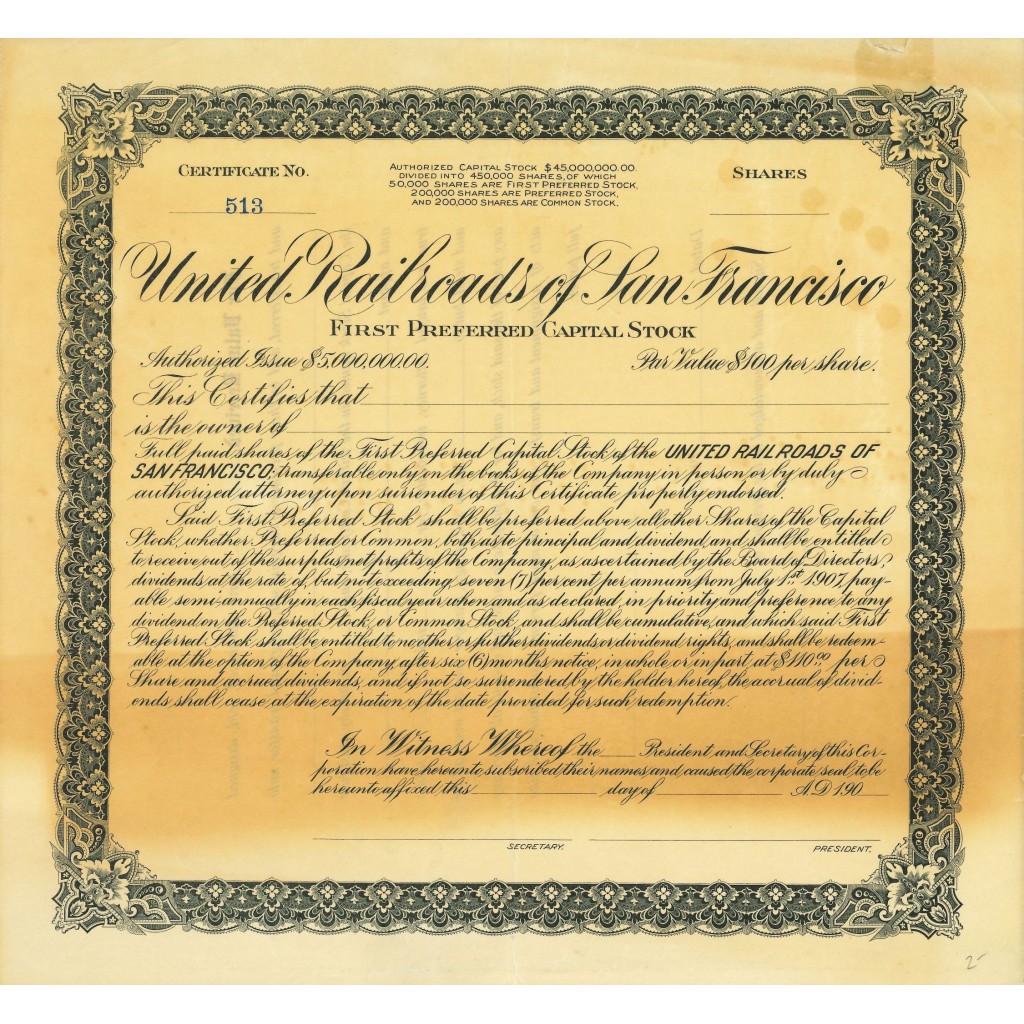 CERTIFICATE NO.
513
AUTHORIZED CAPITAL STOCK $45,000,000.00
DIVIDED INTO 450,000 SHARES, OF WHICH
50,000 SHARES ARE FIRST PREFERRED STOCK,
200,000 SHARES ARE PREFERRED STOCK,
AND 200,000 SHARES ARE COMMON STOCK.
SHARES
United Railroads of San Francisco
FIRST PREFERRED CAPITAL STOCK
Authorized Issue $5,000,000.00. Par Value $100 per share.
This Certifies that
is the owner of
Full paid shares of the First Preferred Capital Stock of the UNITED RAILROADS OF
SAN FRANCISCO; transferable only on the books of the Company in person or by duly
authorized attorney upon surrender of this Certificate properly endorsed.
Said First Preferred Stock shall be preferred above all other Shares of the Capital
Stock, whether Preferred or Common, both as to principal and dividend, and shall be entitled
to receive out of the surplus net profits of the Company, as ascertained by the Board of Directors,
dividends at the rate of, but not exceeding, seven (7) per cent per annum from July 1st 1907, pay-
able semi-annually in each fiscal year when and as declared, in priority and preference to any
dividend on the Preferred Stock, or Common Stock, and shall be cumulative, and which said First
Preferred Stock shall be entitled to no other or further dividends or dividend rights, and shall be redeem-
able at the option of the Company, after six (6) months notice, in whole or in part at $110.00 per
Share and accrued dividends, and if not so surrendered by the holder hereof, the accrual of divid-
ends shall cease at the expiration of the date provided for such redemption.
In Witness Whereof the President and Secretary of this Cor-
poration have hereunto subscribed their names and caused the corporate seal to be
hereunto affixed this day of A.D. 190
SECRETARY.
PRESIDENT.
2-